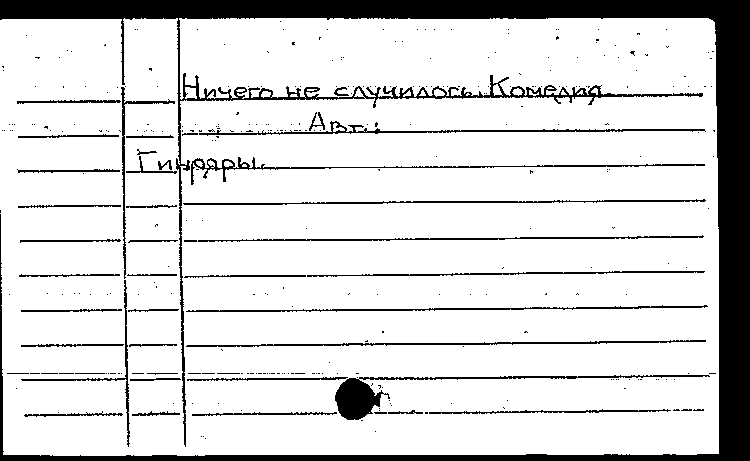 Ничего не случилось. Комедия.
Авт.:
Гинряры.